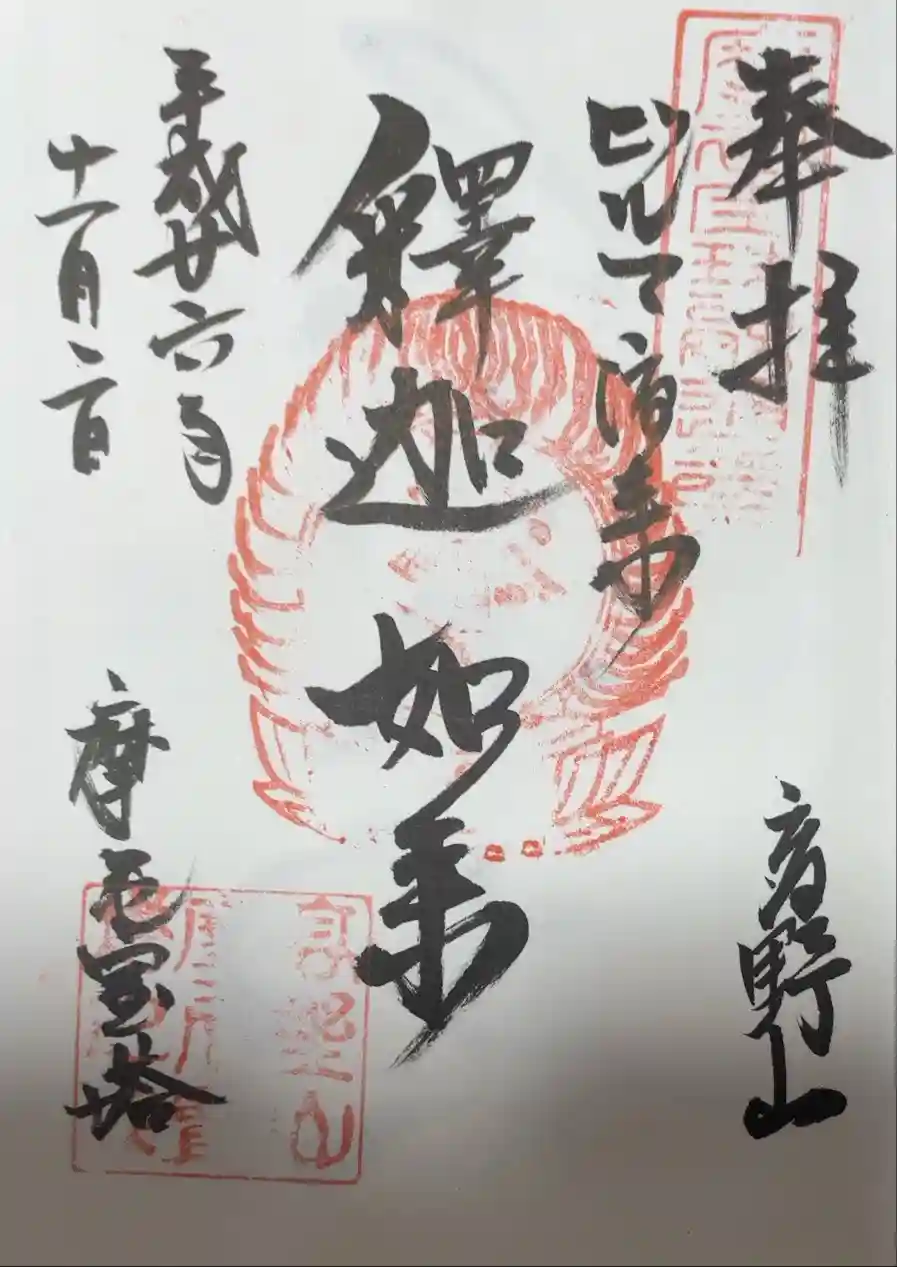 奉拝
高野山
ビルマ渡来
釋迦如来
平成廿六年
十一月二日
摩尼宝塔